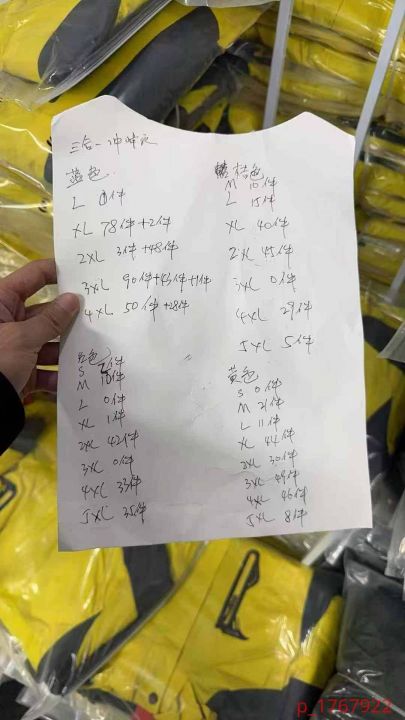 三合一冲锋衣
蓝色
L 0件
XL 78件+2件
2XL 3件+48件
3XL 90件+43件+1件
4XL 50件+28件
桔色
M 10件
L 15件
XL 40件
2XL 45件
3XL 0件
4XL 29件
5XL 5件
红色
S 件
M 10件
L 0件
XL 1件
2XL 42件
3XL 0件
4XL 33件
5XL 35件
黄色
S 0件
M 21件
L 11件
XL 44件
2XL 30件
3XL 49件
4XL 46件
5XL 8件
p_1767922